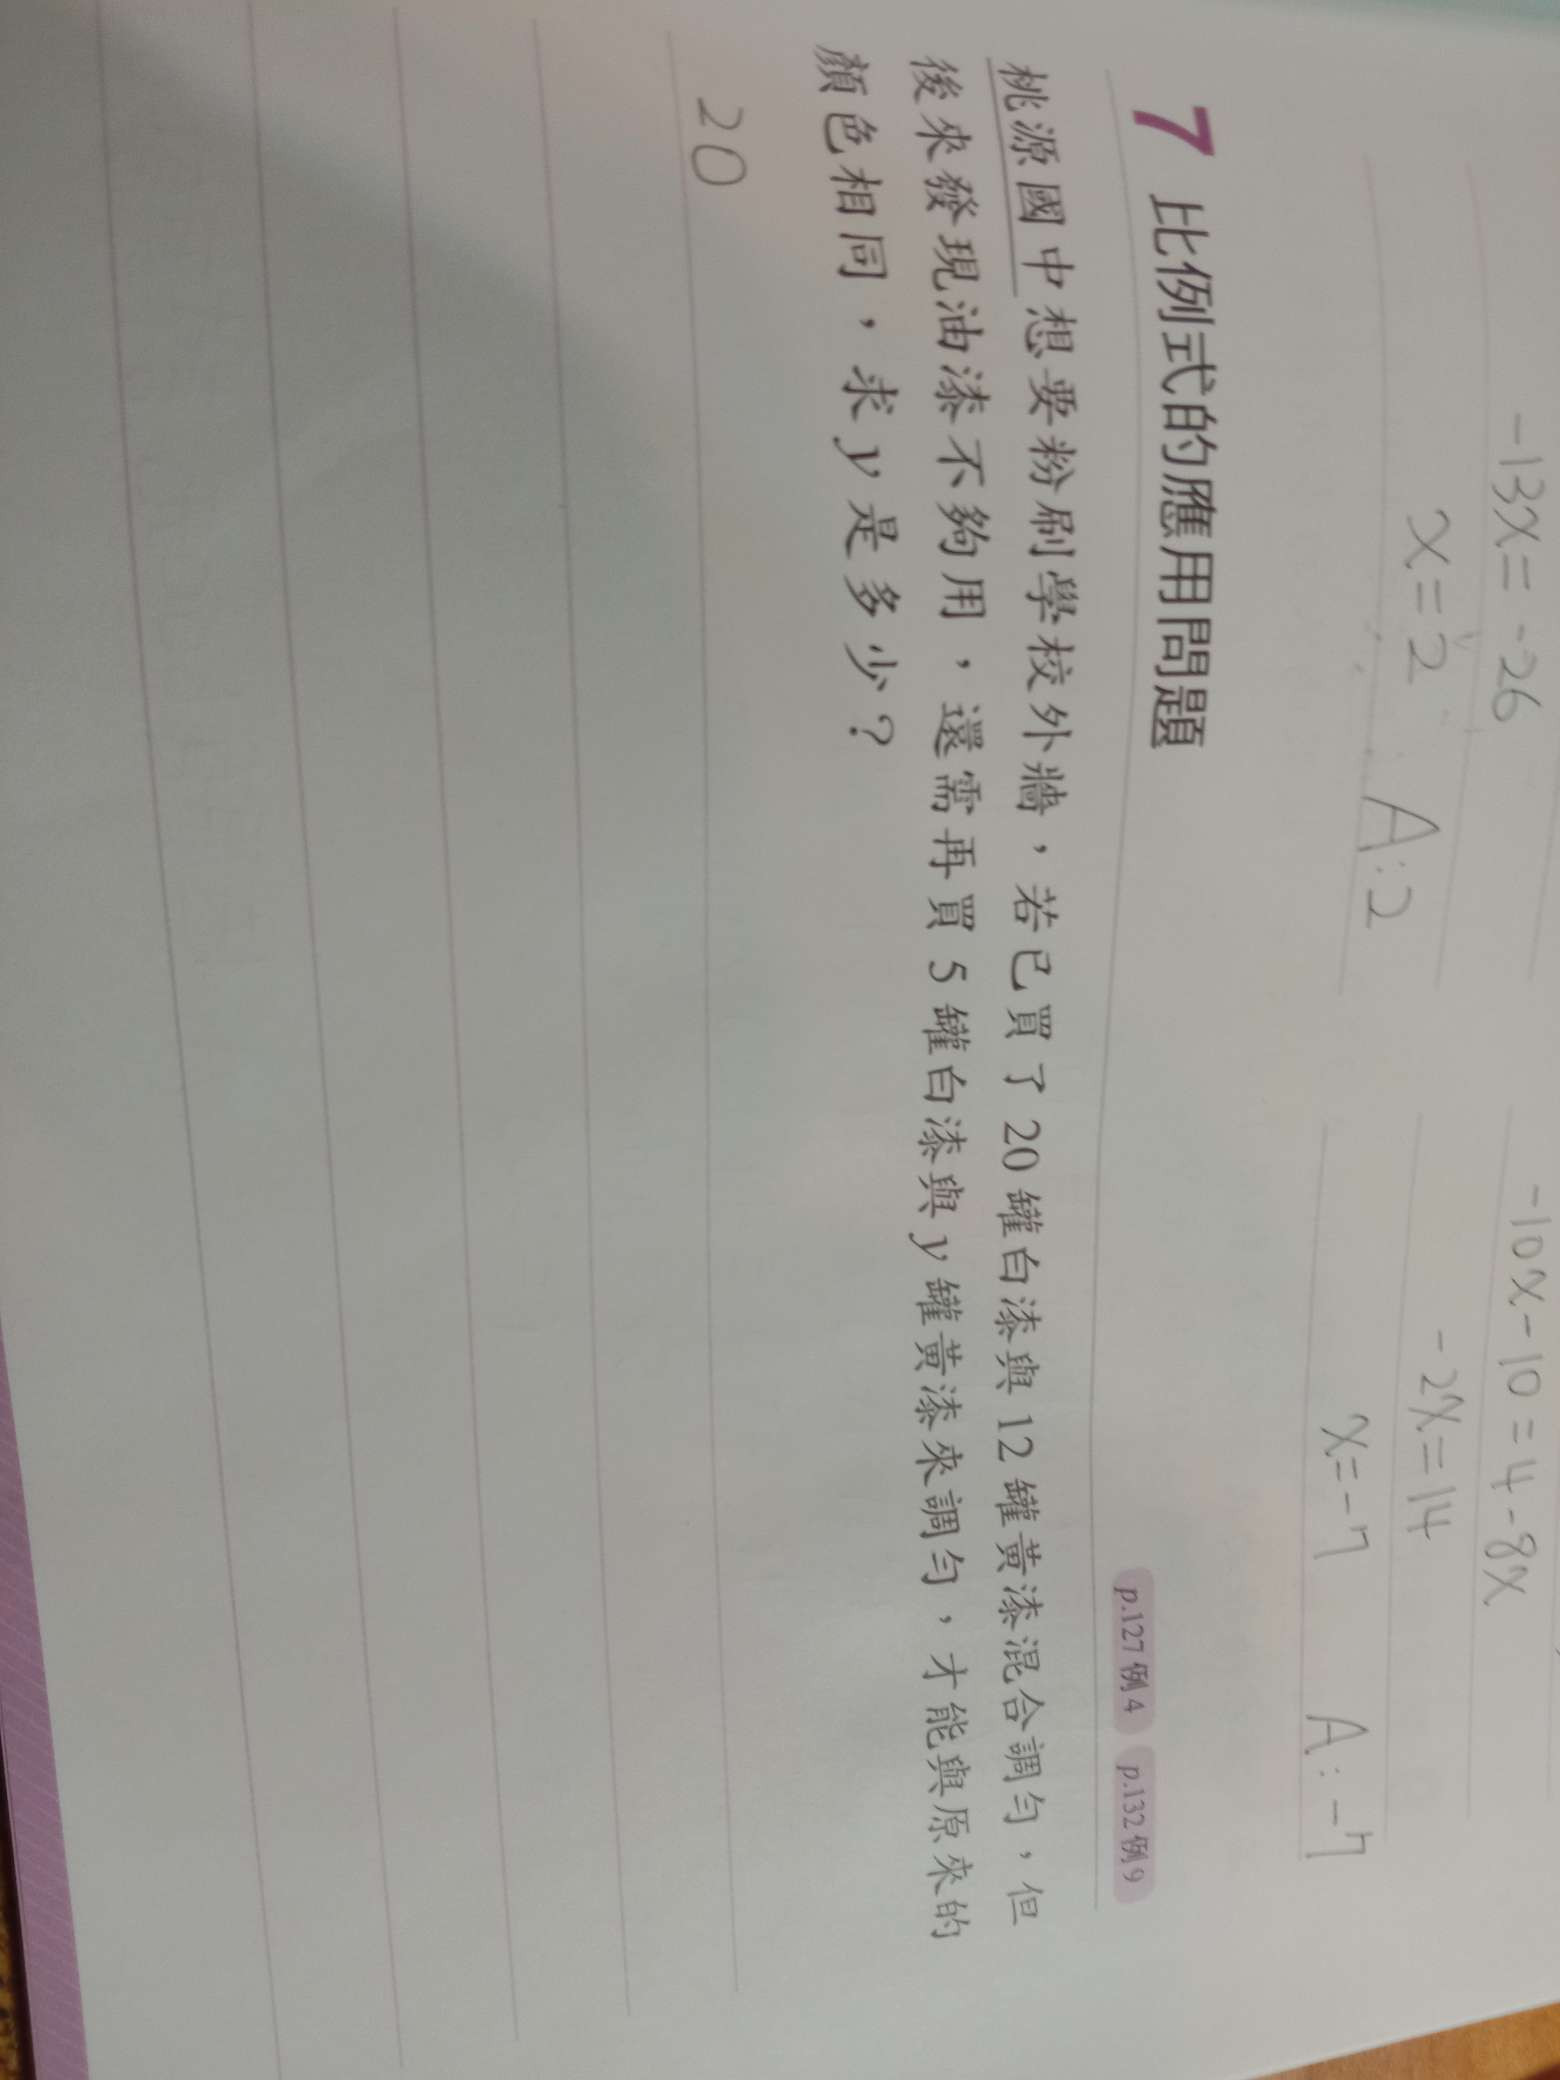 -13x = -26
x = 2
A : 2
-10x - 10 = 4 - 8x
-2x = 14
x = -7
A : -7
7 比例式的應用問題
p.127 例 4 p.132 例 9
桃源國中想要粉刷學校外牆，若已買了 20 罐白漆與 12 罐黃漆混合調勻，但
後來發現油漆不夠用，還需再買 5 罐白漆與 y 罐黃漆來調勻，才能與原來的
顏色相同，求 y 是多少？
20